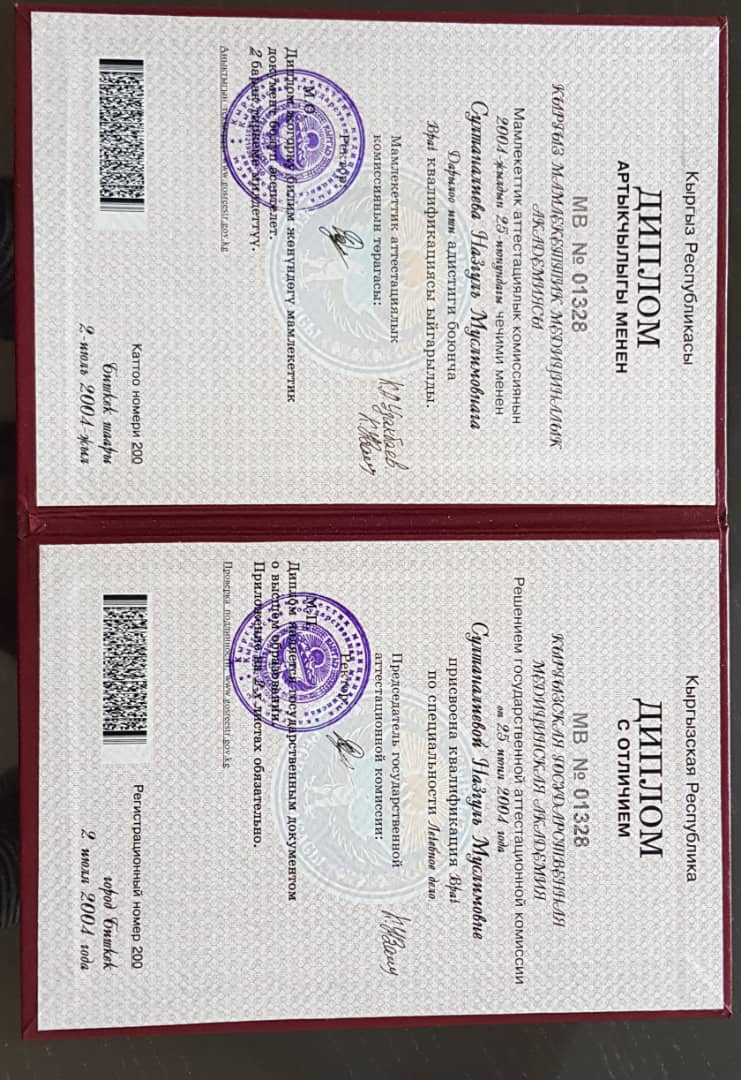 Кыргыз Республикасы
ДИПЛОМ
АРТЫКЧЫЛЫГЫ МЕНЕН
МВ № 01328
КЫРГЫЗ МАМЛЕКЕТТИК МЕДИЦИНАЛЫК
АКАДЕМИЯСЫ
Мамлекеттик аттестациялык комиссиянын
2004-жылдын 25-июнундагы чечими менен
Султаналиева Назгуль Муслимовнага
Дарылоо иши адистиги боюнча
Врач квалификациясы ыйгарылды.
Мамлекеттик аттестациялык
комиссиянын төрагасы:
Ректор:
М.О.
Диплом жогорку билим жөнүндөгү мамлекеттик
документ болуп эсептелет.
2 барак тиркеме милдеттүү.
www.gosreestr.gov.kg
Каттоо номери 200
Бишкек шаары
2-июль 2004-жыл
Кыргызская Республика
ДИПЛОМ
С ОТЛИЧИЕМ
МВ № 01328
КЫРГЫЗСКАЯ ГОСУДАРСТВЕННАЯ
МЕДИЦИНСКАЯ АКАДЕМИЯ
Решением государственной аттестационной комиссии
от 25 июня 2004 года
Султаналиевой Назгуль Муслимовне
присвоена квалификация Врач
по специальности Лечебное дело.
Председатель государственной
аттестационной комиссии:
Ректор:
М.П.
Диплом является государственным документом
о высшем образовании.
Приложение на 2-х листах обязательно.
Проверка подлинности: www.gosreestr.gov.kg
Регистрационный номер 200
город Бишкек
2 июля 2004 года